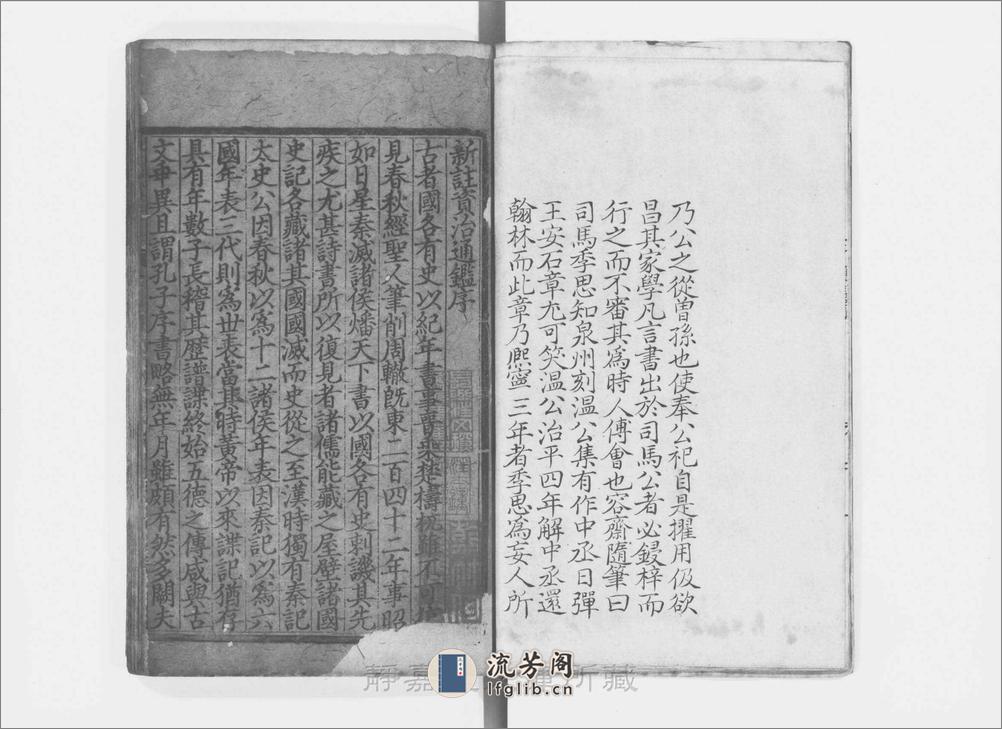 乃公之從曾孫也使奉公祀自是擢用伋欲
昌其家學凡言書出於司馬公者必鋟梓而
行之而不審其爲時人傅會也容齋隨筆曰
司馬季思知泉州刻溫公集有作中丞日彈
王安石章尤可笑溫公治平四年解中丞還
翰林而此章乃熙寧三年者季思爲妄人所
新註資治通鑑序
古者國各有史以紀年書事晉乘楚檮杌雖不可
見春秋經聖人筆削周轍旣東二百四十二年事昭
如日星秦滅諸侯燔天下書以國各有史刺譏其先
疾之尤甚詩書所以復見者諸儒能藏之屋壁諸國
史記各藏諸其國國滅而史從之至漢時獨有秦記
太史公因春秋以為十二諸侯年表因秦記以為六
國年表三代則為世表當其時黃帝以來諜記猶存
具有年數子長稽其歷譜諜終始五德之傳咸與古
文乖異且謂孔子序書略無年月雖頗有然多闕夫
靜嘉 所藏
流芳阁
lfglib.cn